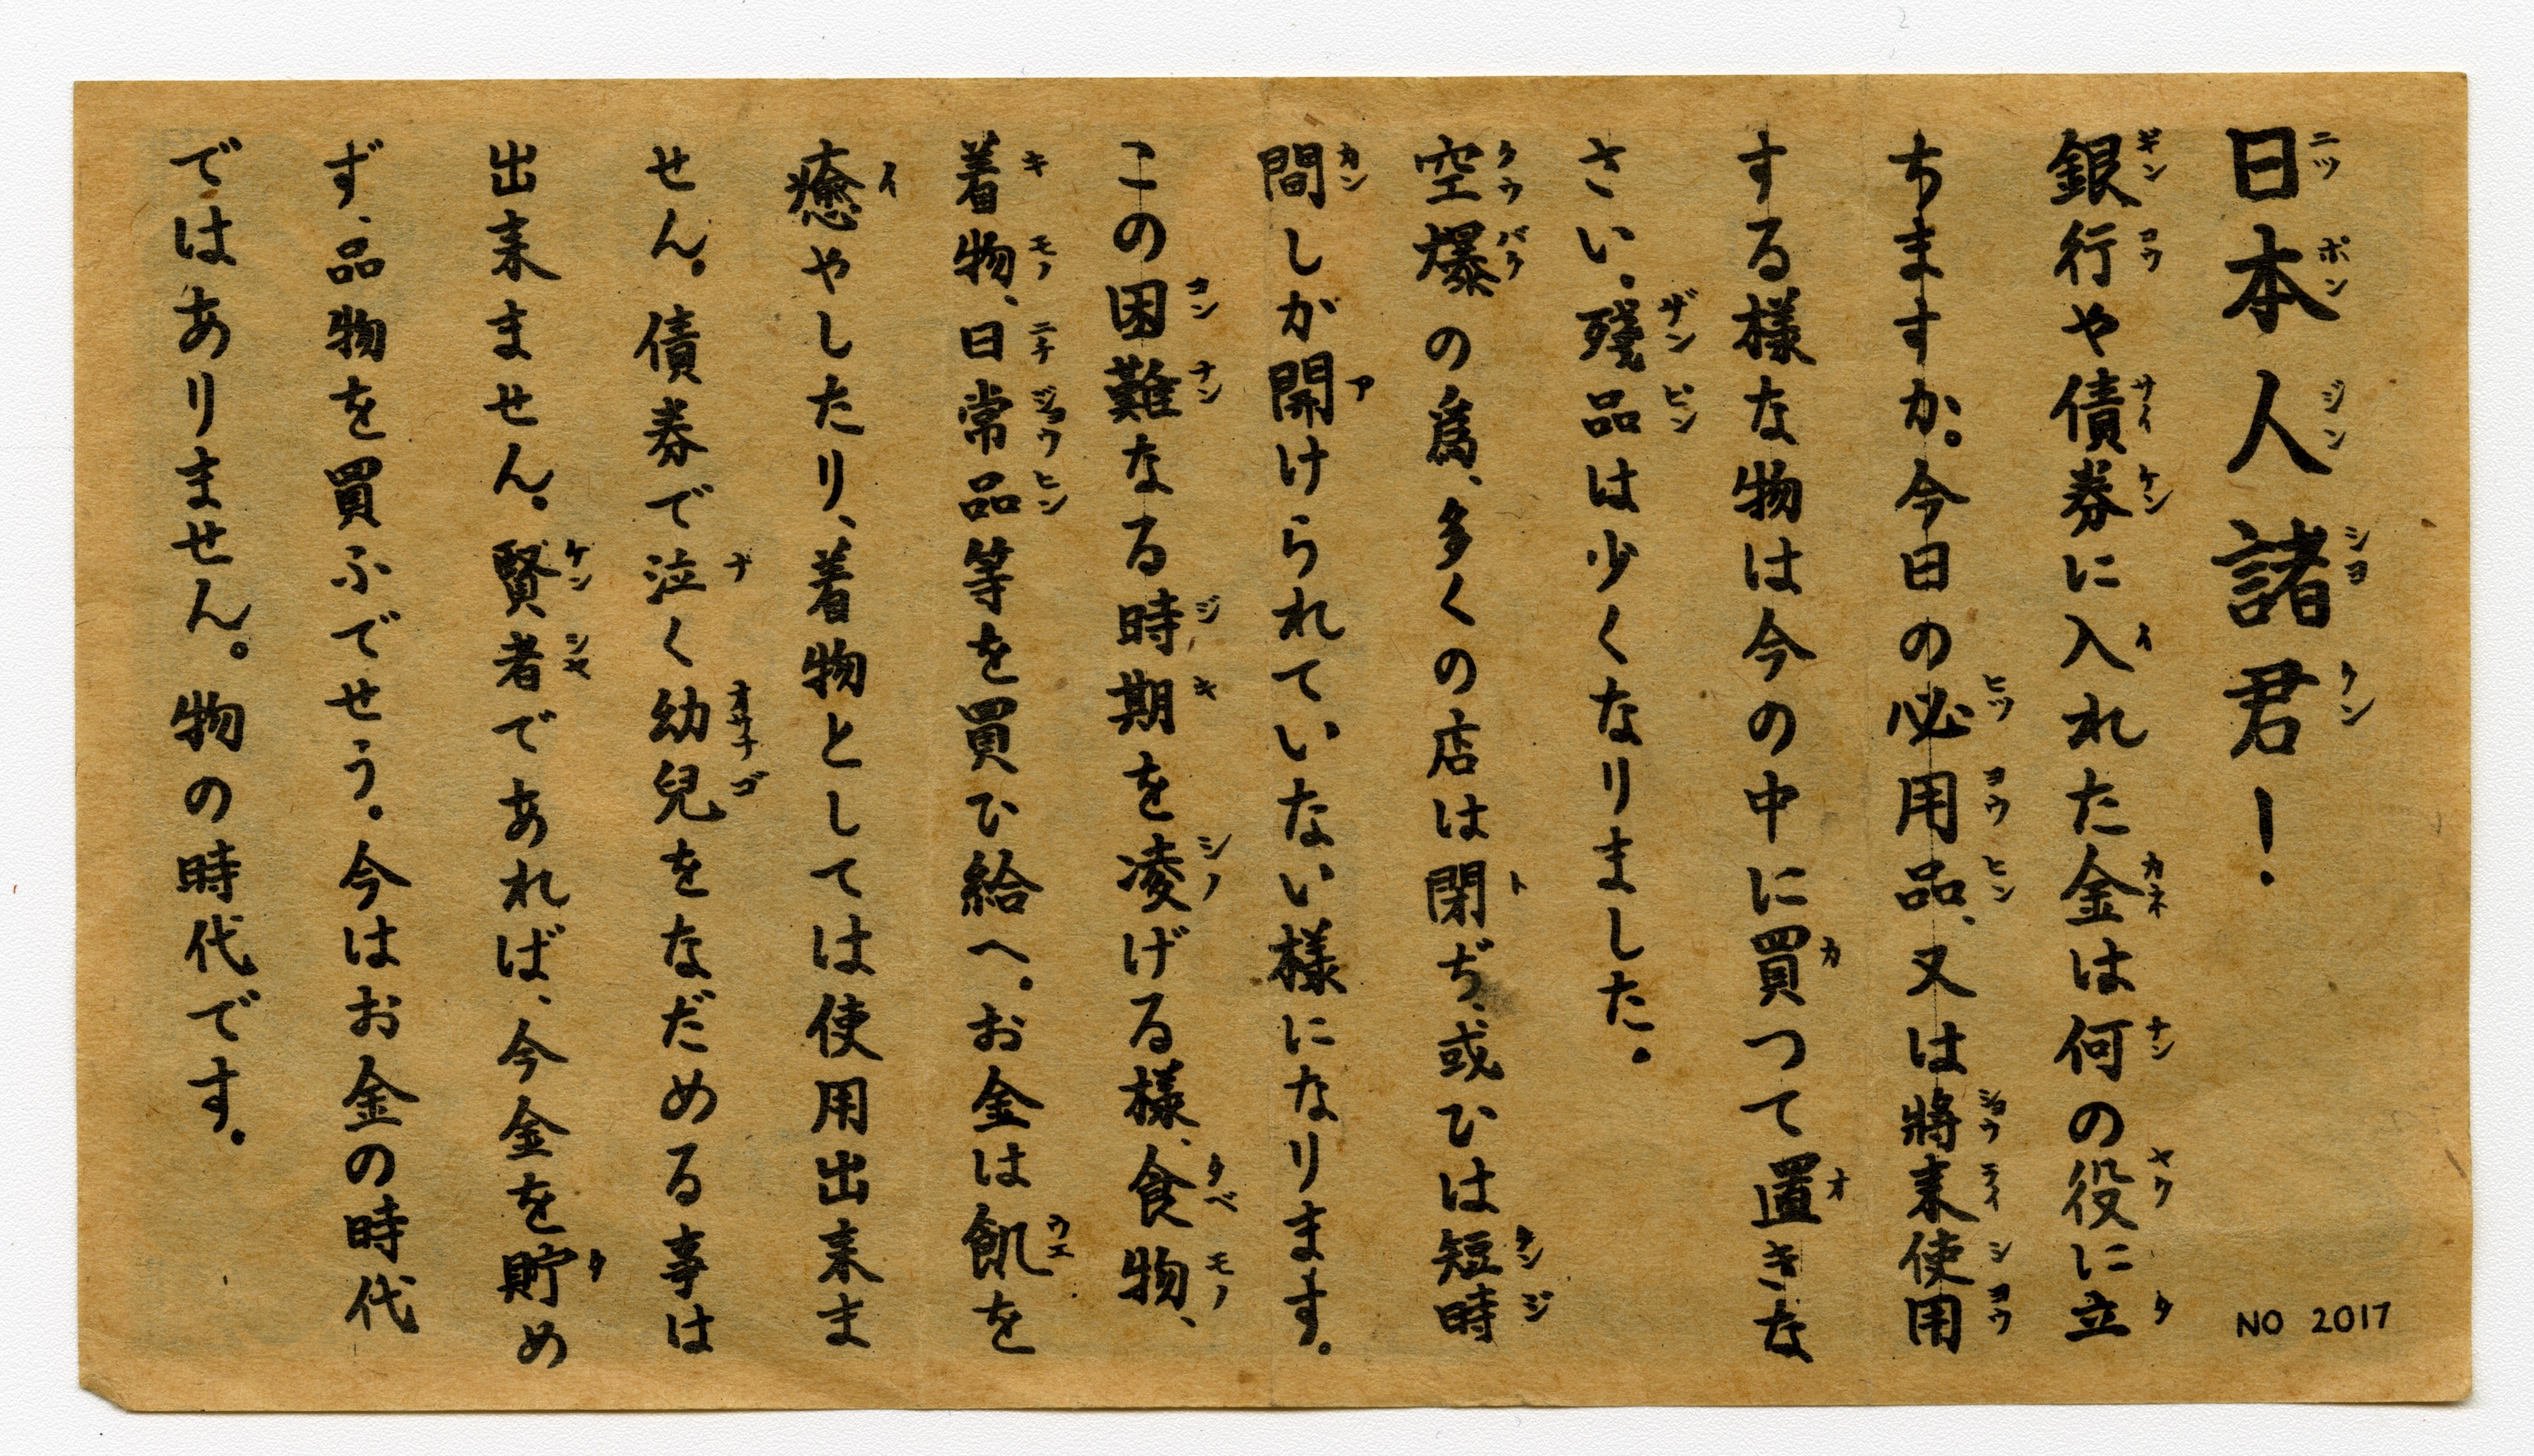 日本人諸君!
銀行や債券に入れた金は何の役に立
ちますか。今日の必用品、又は將来使用
する樣な物は今の中に買つて置きな
さい。殘品は少くなりました。
空爆の爲、多くの店は閉ぢ、或ひは短時
間しか開けられていない樣になります。
この困難なる時期を凌げる樣、食物、
着物、日常品等を買ひ給へ。お金は飢を
癒やしたり、着物としては使用出来ま
せん。債券で泣く幼兒をなだめる事は
出来ません。賢者であれば、今金を貯め
ず、品物を買ふでせう。今はお金の時代
ではありません。物の時代です。
NO 2017